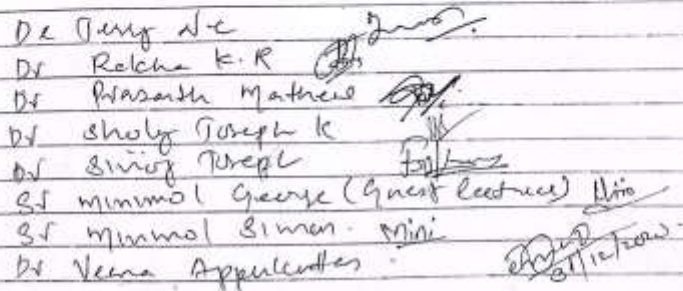 Dr Jerry N.C
Dr Rekha K.R
Dr Prasanth Mathew
Dr Sholy Joseph K
Dr Sinoj Joseph
Sr Minimol George (Guest lecturer)
Sr Minimol Simon. Mini
Dr Veena Appukuttan.
31/12/2020.